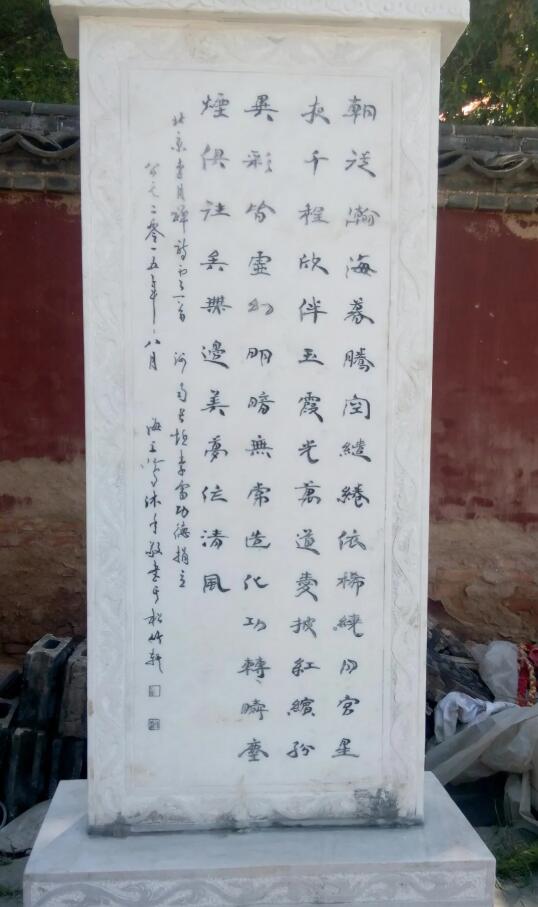 朝送瀚海暮騰空繾綣依稀繞月宮星
夜千程欣伴玉霞光萬道愛披紅繽紛
異彩皆虛幻明暗無常造化功轉瞬塵
煙俱往矣無邊美夢任清風
北京李月禪詩一首 河南長垣李富功德捐立
公元二零一五年八月 海上沐手敬書于松竹軒